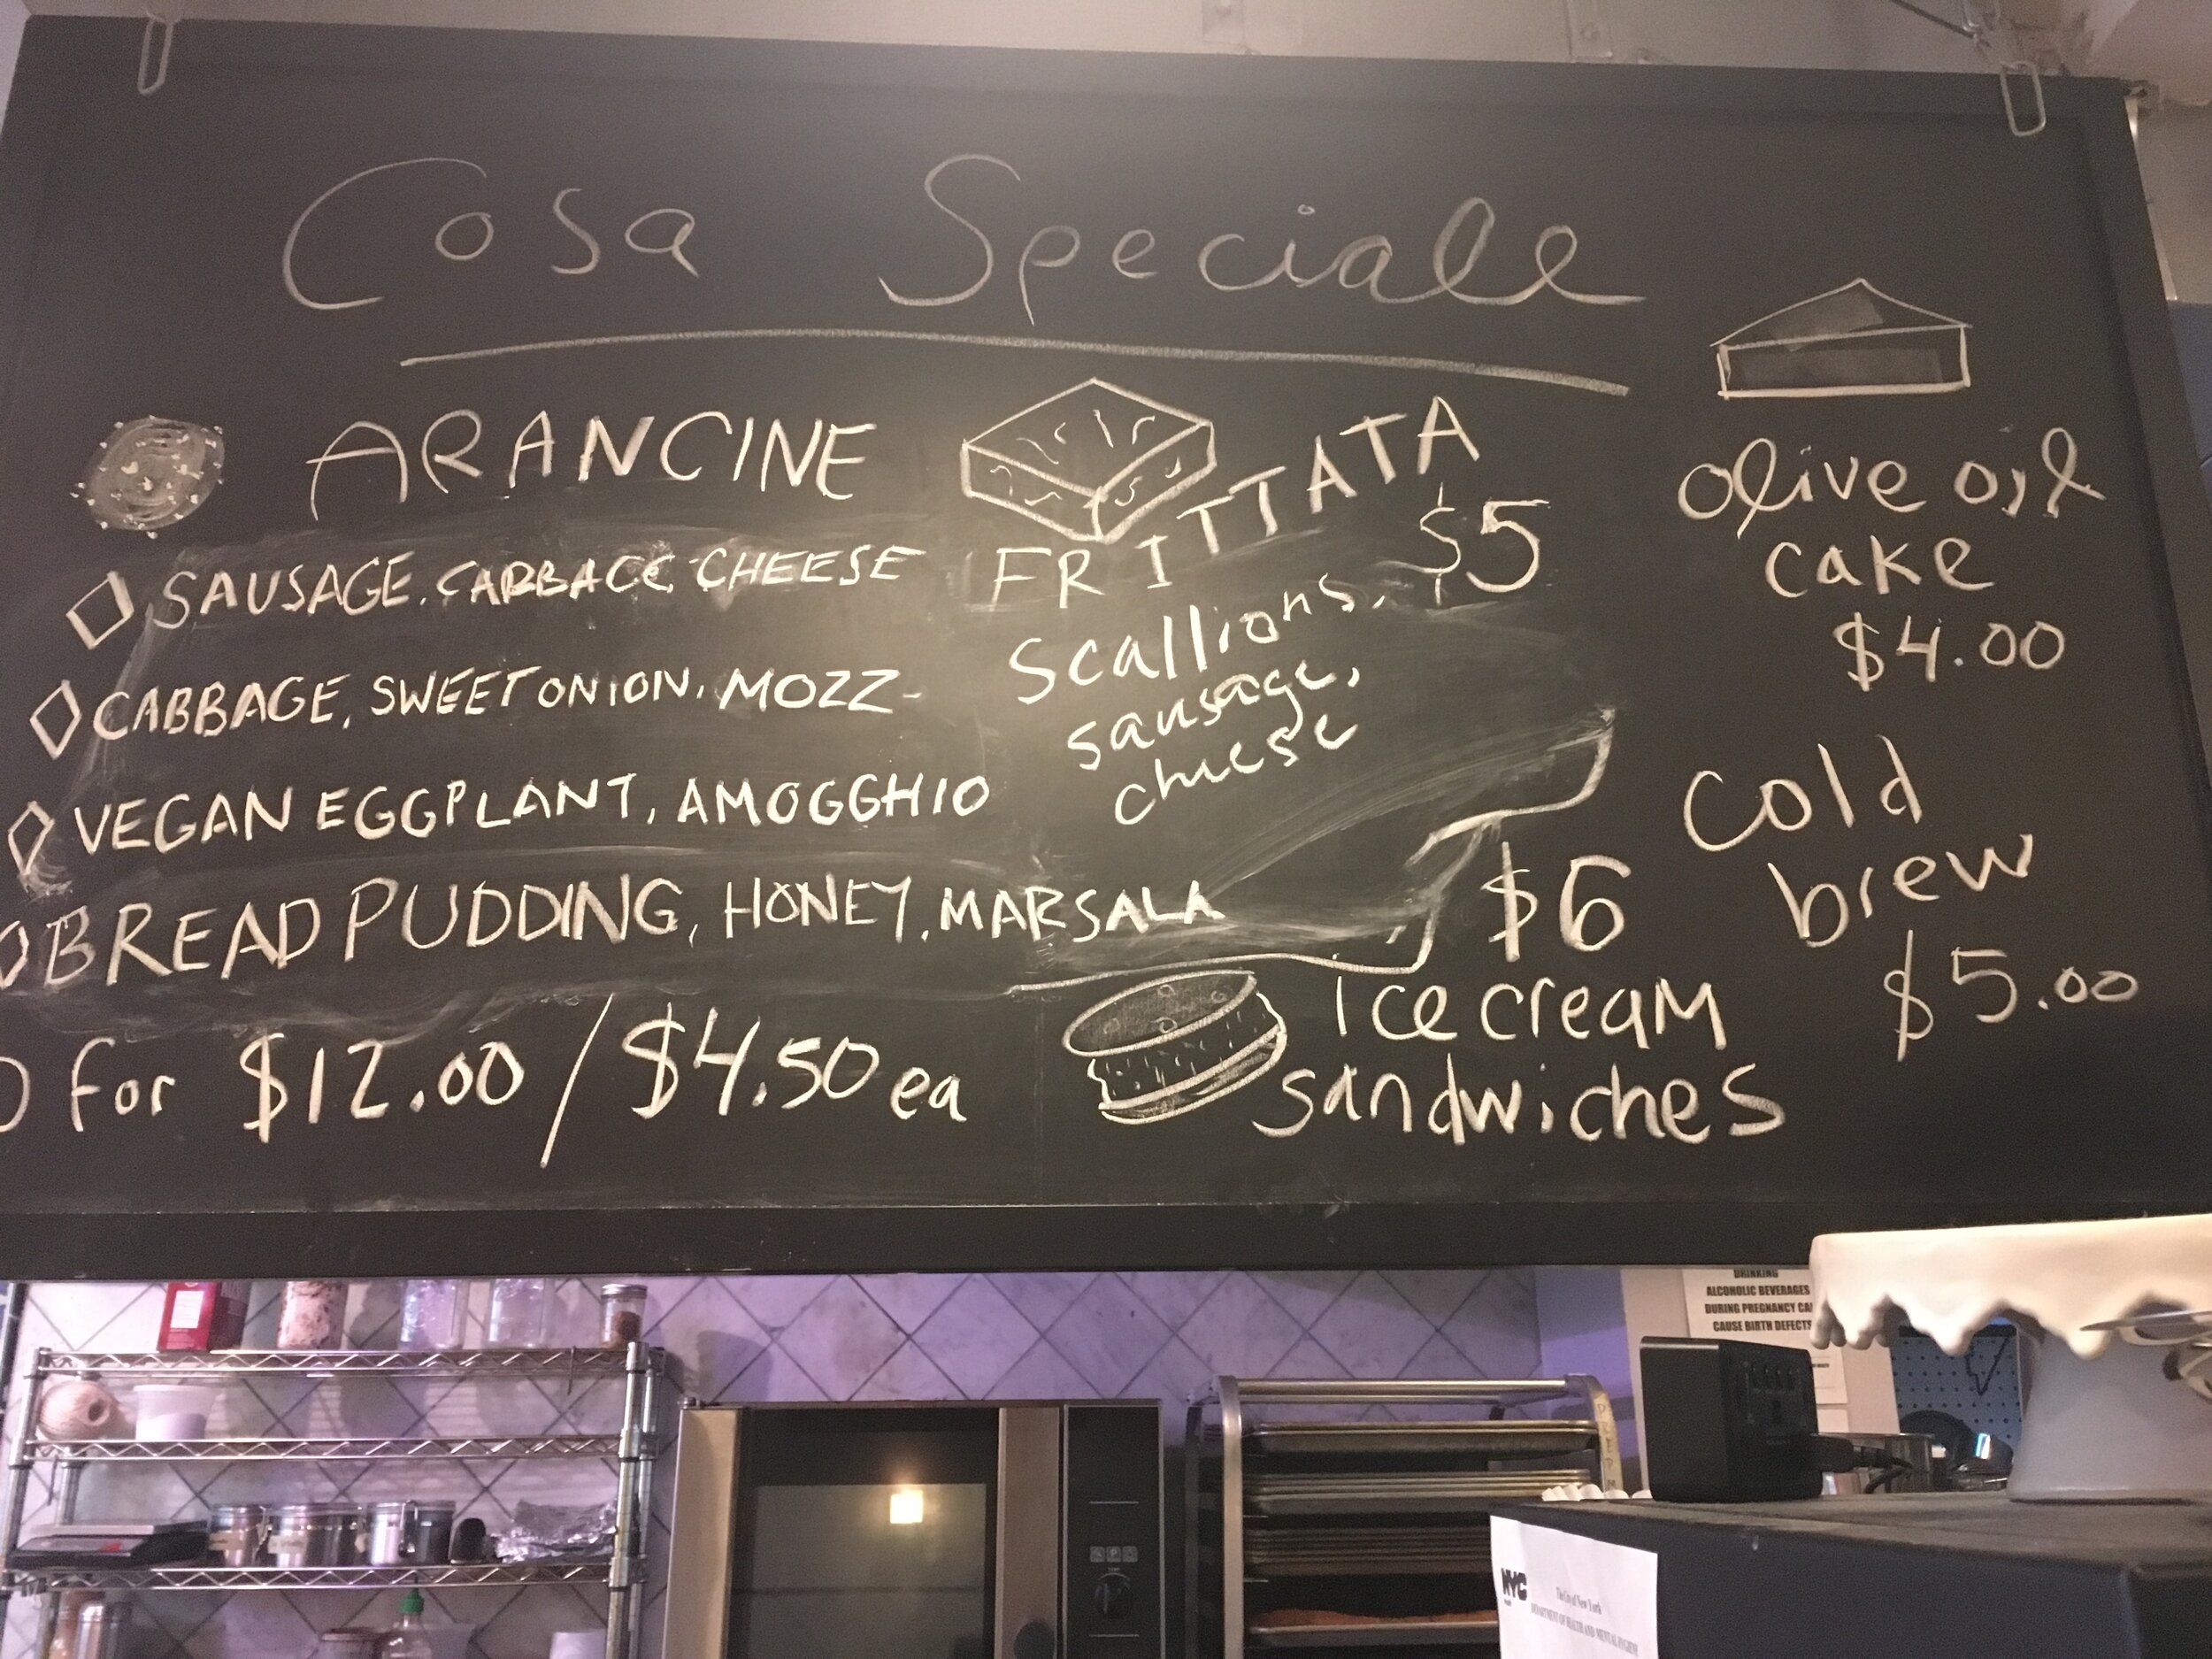 Cosa Speciale
ARANCINE
SAUSAGE, CABBAGE CHEESE
CABBAGE, SWEET ONION, MOZZ-
VEGAN EGGPLANT, AMOGGHIO
BREAD PUDDING, HONEY, MARSALA
for $12.00 / $4.50 ea
FRITTATA
$5
scallions,
sausage,
cheese
$6
ice cream
sandwiches
olive oil
cake
$4.00
Cold
brew
$5.00
DRINKING
ALCOHOLIC BEVERAGES
DURING PREGNANCY CA
CAUSE BIRTH DEFECTS
NYC
The City of New York
DEPARTMENT OF HEALTH AND MENTAL HYGIENE